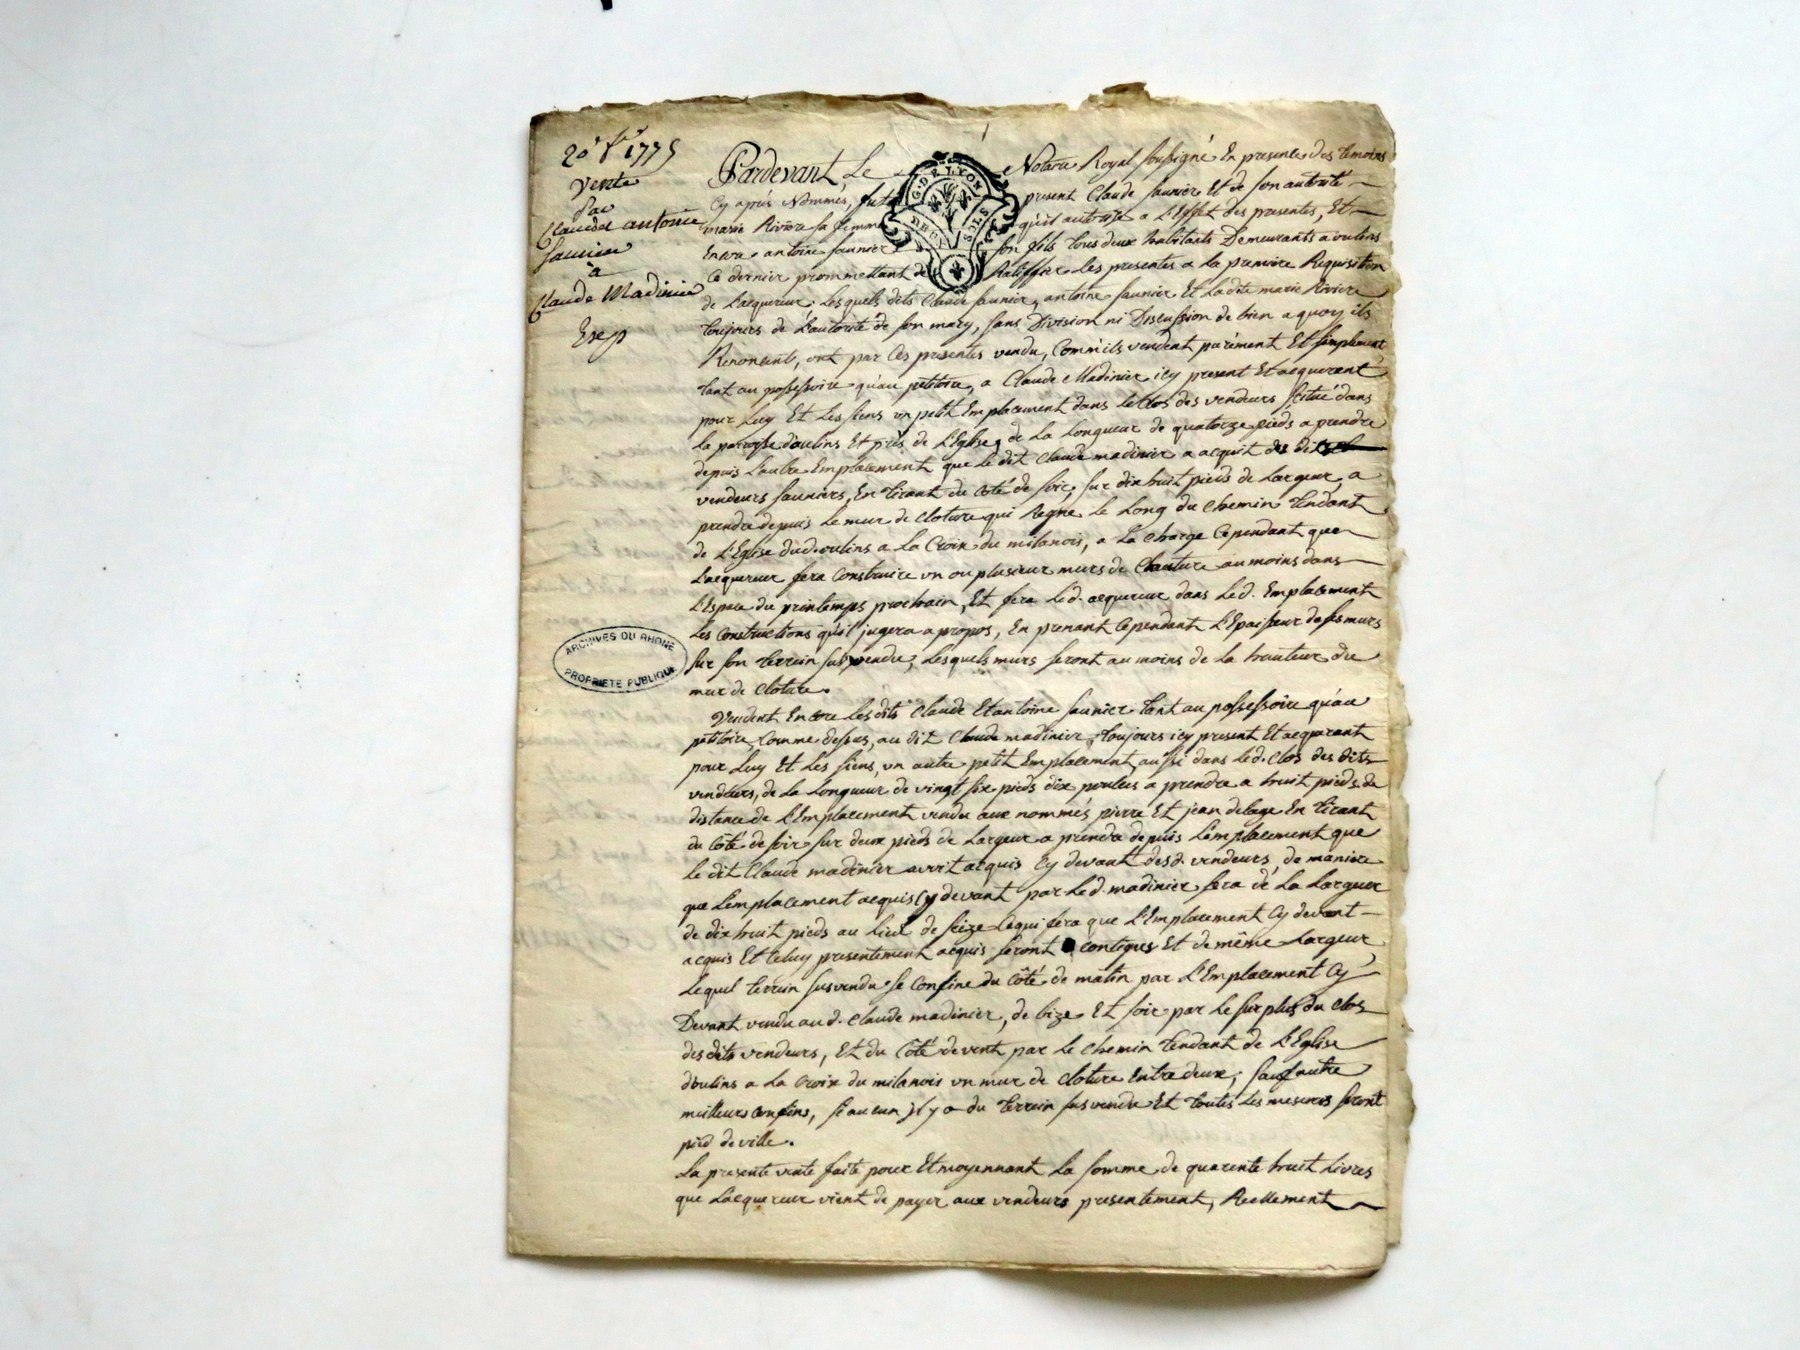 20e 7bre 1775
Vente
par
Claude antoine
Saunier
à
Claude Madinier
Exep
G. DE LYON
DEUX SOLS
ARCHIVES DU RHONE
PROPRIETE PUBLIQUE
Pardevant, Le Notaire Royal soussigné En presence des temoins
Cy après Nommés, fut present Claude saunier Et de son autorité
marie Riviere sa femme qu'il autorise a L'Effet des presentes, Et
Encore antoine saunier son fils tous deux habitants Demeurants a oulins
Ce dernier promettant de Ratiffier Les presentes a la premiere Requisition
de L'acquereur; Lesquels dits Claude saunier, antoine saunier Et Ladite marie Riviere
toujours de L'autorité de son mary, sans Division ni Discussion de bien a quoy ils
Renoncent, ont par Ces presentes vendu, Comm'ils vendent purement Et simplement
tant au possessoire qu'au petitoire, a Claude Madinier icy present Et acquerant
pour Luy Et Les siens un petit Emplacement dans le Clos des vendeurs scitué dans
La paroisse d'oulins Et près de L'Eglise, de La Longueur de quatorze pieds a prendre
depuis L'autre Emplacement que le dit Claude madinier a acquit des dits
vendeurs sauniers, En tirant du Coté de soir, sur dix huit pieds de Largeur, a
prendre depuis Le mur de Cloture qui Regne Le Long du Chemin tendant
de L'Eglise dud. oulins a La Croix du milanois, a La Charge Cependant que
L'acquereur fera Construire un ou plusieur murs de Clauture au moins dans
L'Espace du printemps prochain, Et fera Led. acquereur dans Led. Emplacement
Les Constructions qu'il jugera a propos, En prenant Cependant L'Epaisseur de ses murs
sur son terrein susvendu, Lesquels murs seront au moins de La hauteur du
mur de Cloture.
Vendent Encore Lesdits Claude Et antoine saunier tant au possessoire qu'au
petitoire, Comme dessus, au dit Claude madinier, toujours icy present Et acquerant
pour Luy Et Les siens, un autre petit Emplacement, aussi dans Led. Clos des dits
vendeurs, de La Longueur de vingt six pieds dix pouces a prendre a huit pieds de
distance de L'Emplacement vendu aux nommés pierre Et jean delage En tirant
du Coté de soir sur deux pieds de Largeur a prendre depuis L'emplacement que
Le dit Claude madinier avoit acquis Cy devant desd. vendeurs, de maniere
que L'emplacement acquis Cy devant par Led. madinier sera de La Largeur
de dix huit pieds au Lieu de seize Ce qui fera que L'Emplacement Cy devant
acquis Et Celuy presentement acquis seront contigus Et de même Largeur
Lequel terrein susvendu se Confine du Côté de matin par L'Emplacement Cy
Devant vendu aud. Claude madinier, de bize Et soir par Le surplus du Clos
des dits vendeurs, Et du Coté de vent par Le Chemin tendant de L'Eglise
d'oulins a La Croix du milanois un mur de Cloture Entre deux; sauf autre
meilleurs Confins, si aucun il y a du terrein susvendu Et toutes Les mesures seront
pied de ville.
La presente vente faite pour Et moyennant La somme de quarente huit Livres
que L'acquereur vient de payer aux vendeurs presentement, Reellement